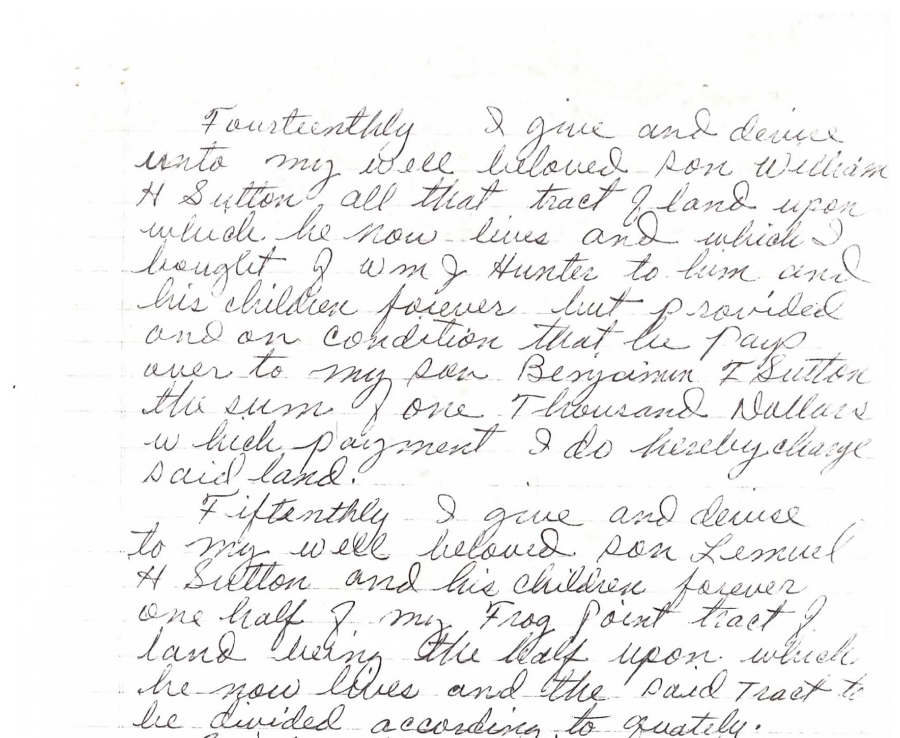 Fourteenthly I give and devise
unto my well beloved son William
H Sutton all that tract of land upon
which he now lives and which I
bought of Wm J Hunter to him and
his children forever but provided
and on condition that he pays
over to my son Benjamin F Sutton
the sum of one Thousand Dollars
which payment I do hereby charge
said land.
Fiftenthly I give and devise
to my well beloved son Lemuel
H Sutton and his children forever
one half of my Frog Point tract of
land being the half upon which
he now lives and the said Tract to
be divided according to quately.